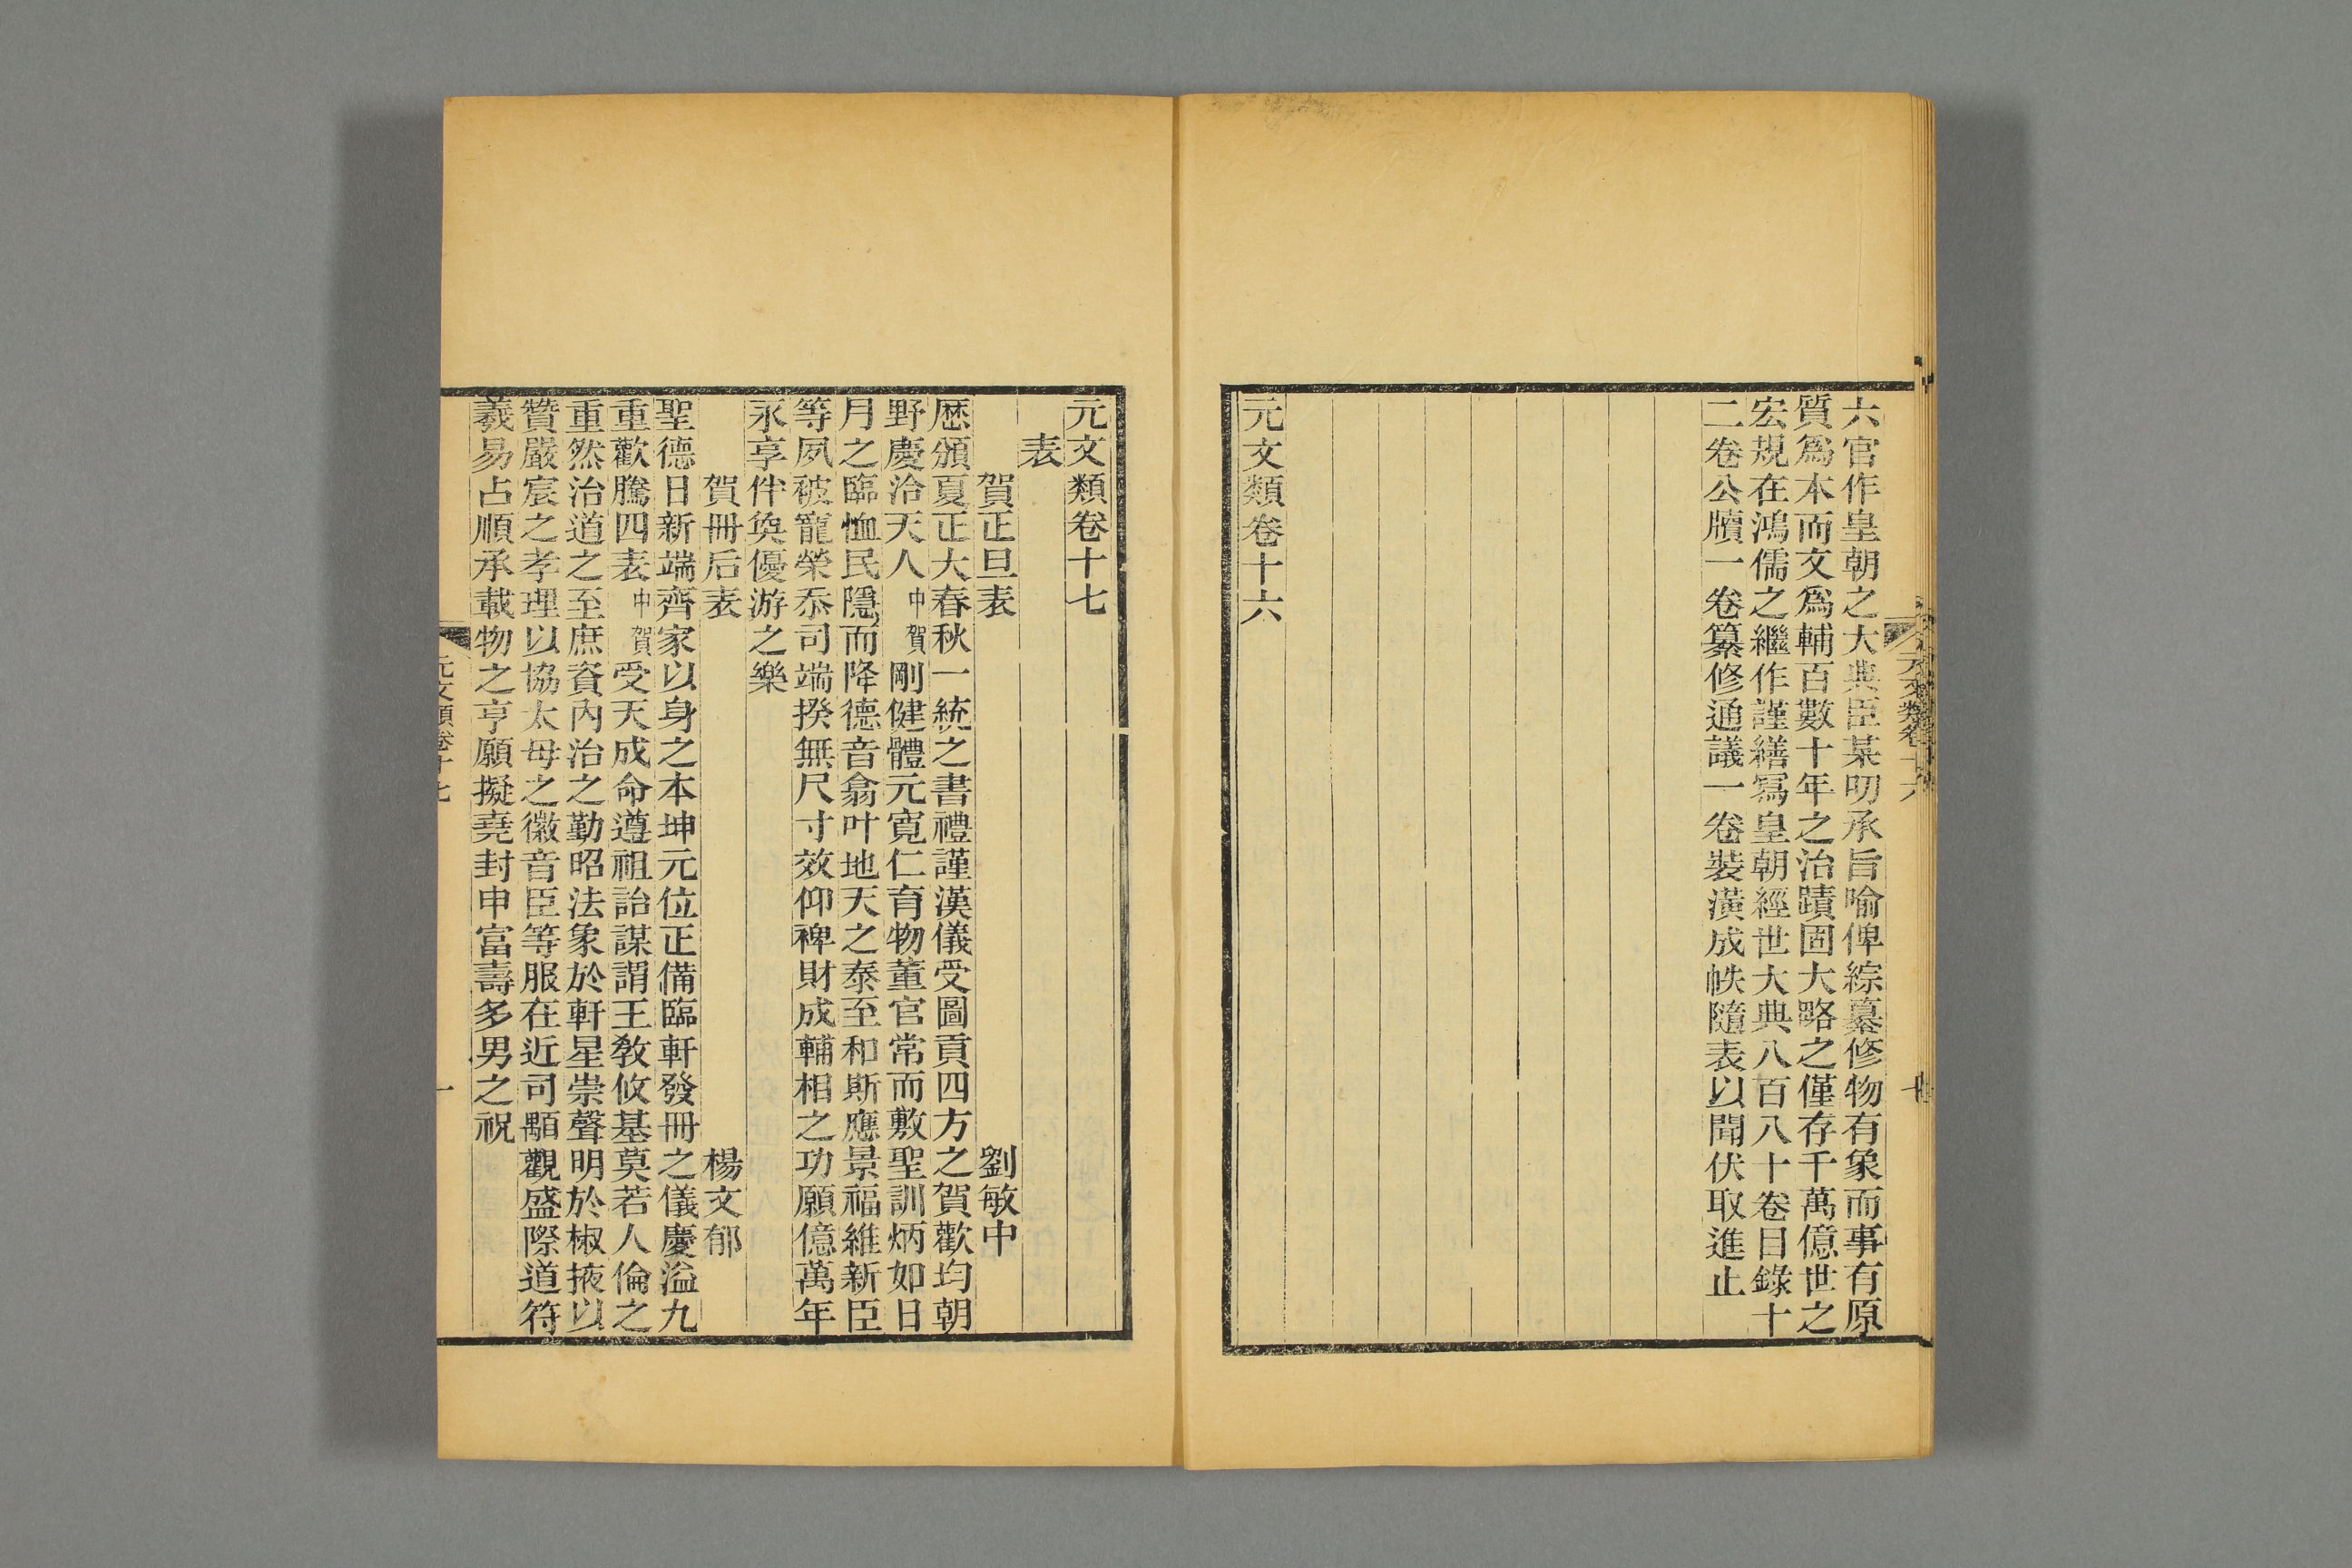 六官作皇朝之大典臣某叨承旨喻俾綜纂修物有象而事有原
質爲本而文爲輔百數十年之治蹟固大略之僅存千萬億世之
宏規在鴻儒之繼作謹繕寫皇朝經世大典八百八十卷目錄十
二卷公牘一卷纂修通議一卷裝潢成帙隨表以聞伏取進止
元文類卷十六
元文類卷十七
表
賀正旦表 劉敏中
歷頒夏正大春秋一統之書禮謹漢儀受圖貢四方之賀歡均朝
野慶洽天人中賀剛健體元寬仁育物董官常而敷聖訓炳如日
月之臨恤民隱而降德音翕叶地天之泰至和斯應景福維新臣
等夙被寵榮忝司端揆無尺寸效仰裨財成輔相之功願億萬年
永享伴奐優游之樂
賀冊后表 楊文郁
聖德日新端齊家以身之本坤元位正備臨軒發冊之儀慶溢九
重歡騰四表中賀受天成命遵祖詒謀謂王教攸基莫若人倫之
重然治道之至庶資內治之勤昭法象於軒星崇聲明於椒掖以
贊嚴宸之孝理以協太母之徽音臣等服在近司顒觀盛際道符
羲易占順承載物之亨願擬堯封申富壽多男之祝
元文類卷十七
一